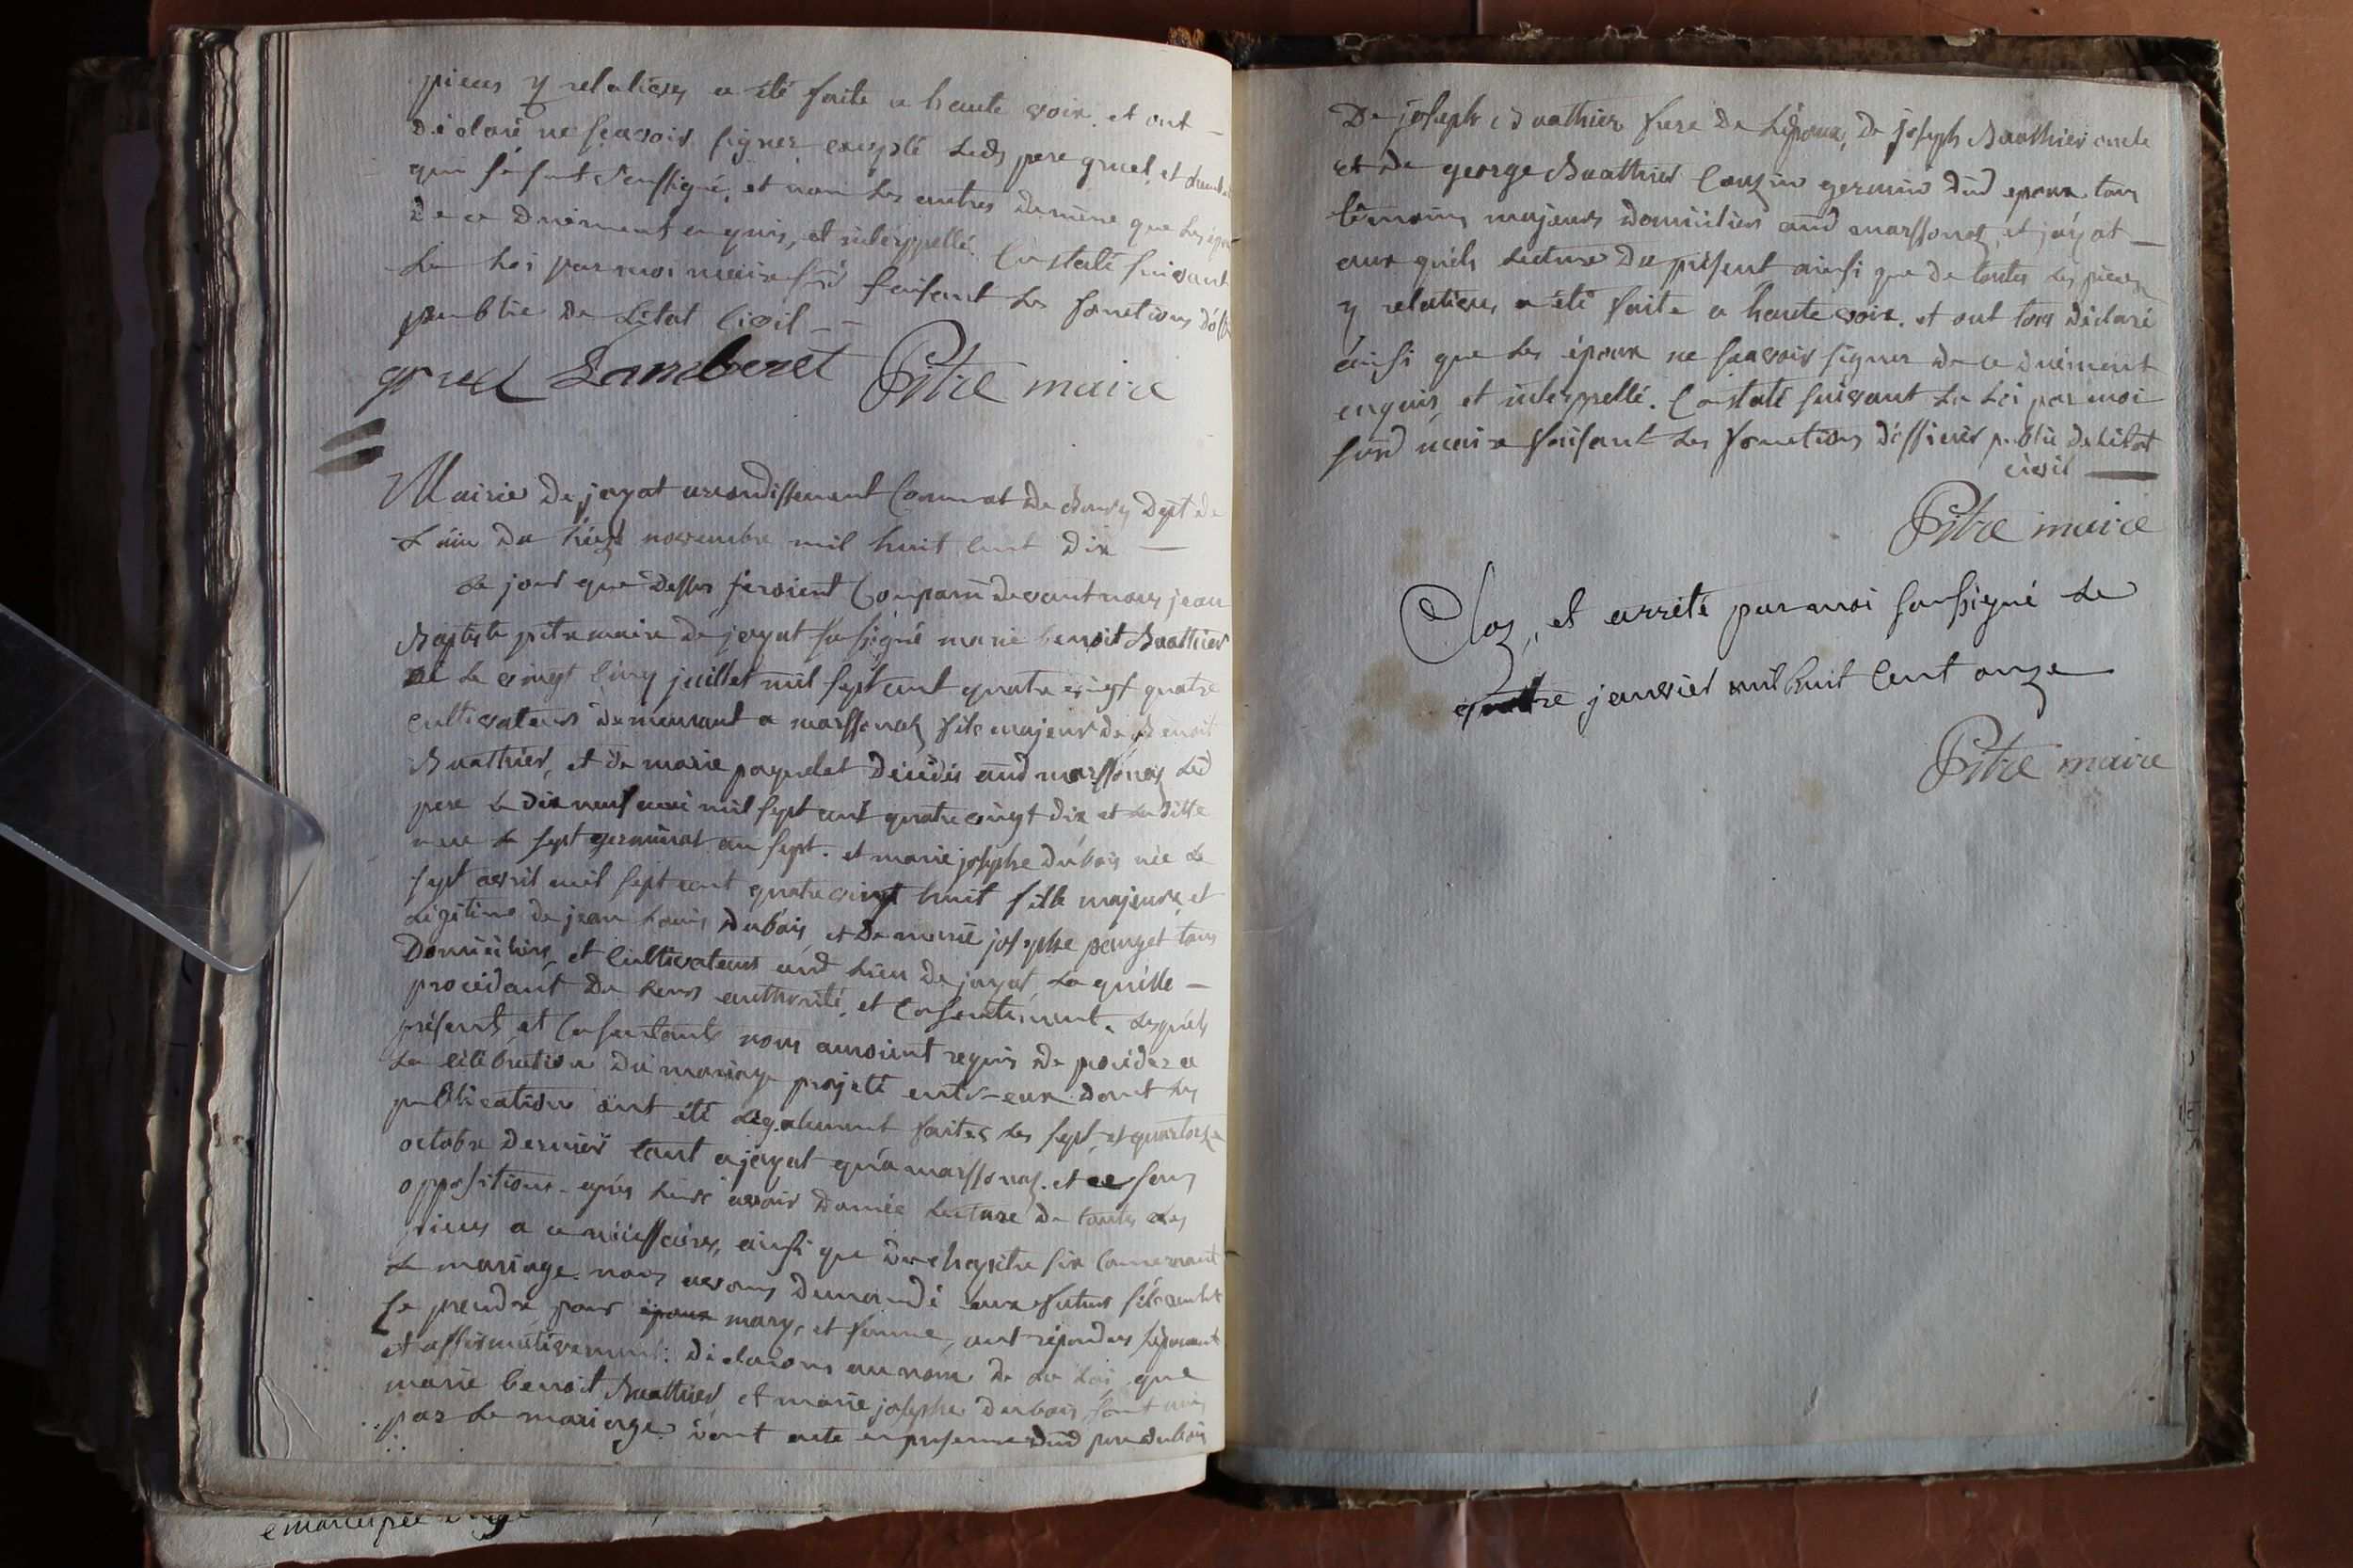 pieces y relatives a été faite a haute voix. et ont —
déclaré ne scavoir signer excepté leds pere gruel, et
qui se sont soussigné, et non les autres de meme que les
de ce duëment enquis, et interppellé. Constaté suivant
La Loi par moi maire sud faisant les fonctions
publie de L'état Civil —
gruel Lamberet Pitre maire
Mairie de jayat arrondissement Communal de Bourg Dept de
L'ain du treize novembre mil huit cent dix —
Le jour que dessus seroient Comparu devant nous jean
Baptiste pitre maire de jayat sousigné marie benoit Buathier
né Le vingt cinq juillet mil sept cent quatre vingt quatre
cultivateur demeurant a marssonas fils majeur de Benoit
Buathier, et de marie paquelet décédés aud marssonas Led
pere Le dix neuf mai mil sept cent quatre vingt dix et La ditte
mere Le sept germinal an sept. et marie josephe dubois née Le
sept avril mil sept cent quatre vingt huit fille majeure et
Légitime de jean Louis Dubois, et de marie josephe pauget tous
Domiciliés, et Cultivateurs aud Lieu de jayat, La quelle —
procédant de Leurs authorité, et Consentement. Lesquels
présents et Consentants nous auroient requis de procéder a
La célébration du mariage projeté entr-eux dont Les
publication ont été Légalement faites Les sept et quatorze
octobre dernier tant a jayat qu'a marssonas. et ce sans
oppositions. après Leurs avoir donnée Lecture de toutes Les
pieces a ce nécessaires, ainsi que du chapitre six Concernant
Le mariage. nous avons demandé aux futurs s'ils veulent
se prendre pour époux mary, et femme, ont répondus séparement
et affirmativement: déclarons au nom de La Loi que
marie benoit Buathier, et marie josephe dubois sont unis
par Le mariage. dont acte en presence dud pere dubois
De joseph Buathier frere de Lépoux, de joseph Buathier oncle
et de george Buathier Couzin germain dud epoux tous
témoins majeurs domiciliés aud marssonas, et jayat —
aux quels Lecture du présent ainsi que de toutes Les pieces
y relatives, a été faite a haute voix. et ont tous déclaré
ainsi que Les époux ne scavoir signer de ce duëment
enquis, et interppellé. Constaté suivant La Loi par moi
susd maire faisant Les fonctions d'officier public de L'état
civil —
Pitre maire
Clos, et arrêté par moi soussigné Le
quatre janvier mil huit Cent onze
Pitre maire
emancipée